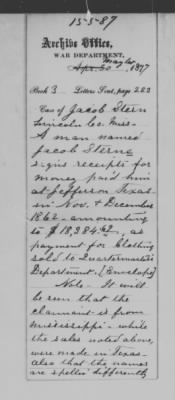 15587
Archive Office,
WAR DEPARTMENT,
May 20, 1877
Book 3 Letters Sent, page 222
Case of Jacob Stern
Lincoln Co. Miss.
A man named
Jacob Sterne
signs receipts for
money paid him
at Jefferson Texas
in Nov. & December
1862 - amounting
to $18,284.62, as
payment for Clothing
sold to Quartermaster's
Department. (Envelope)
Note - It will
be seen that the
claimant is from
Mississippi - while
the sales noted above,
were made in Texas -
also that the names
are spelled differently